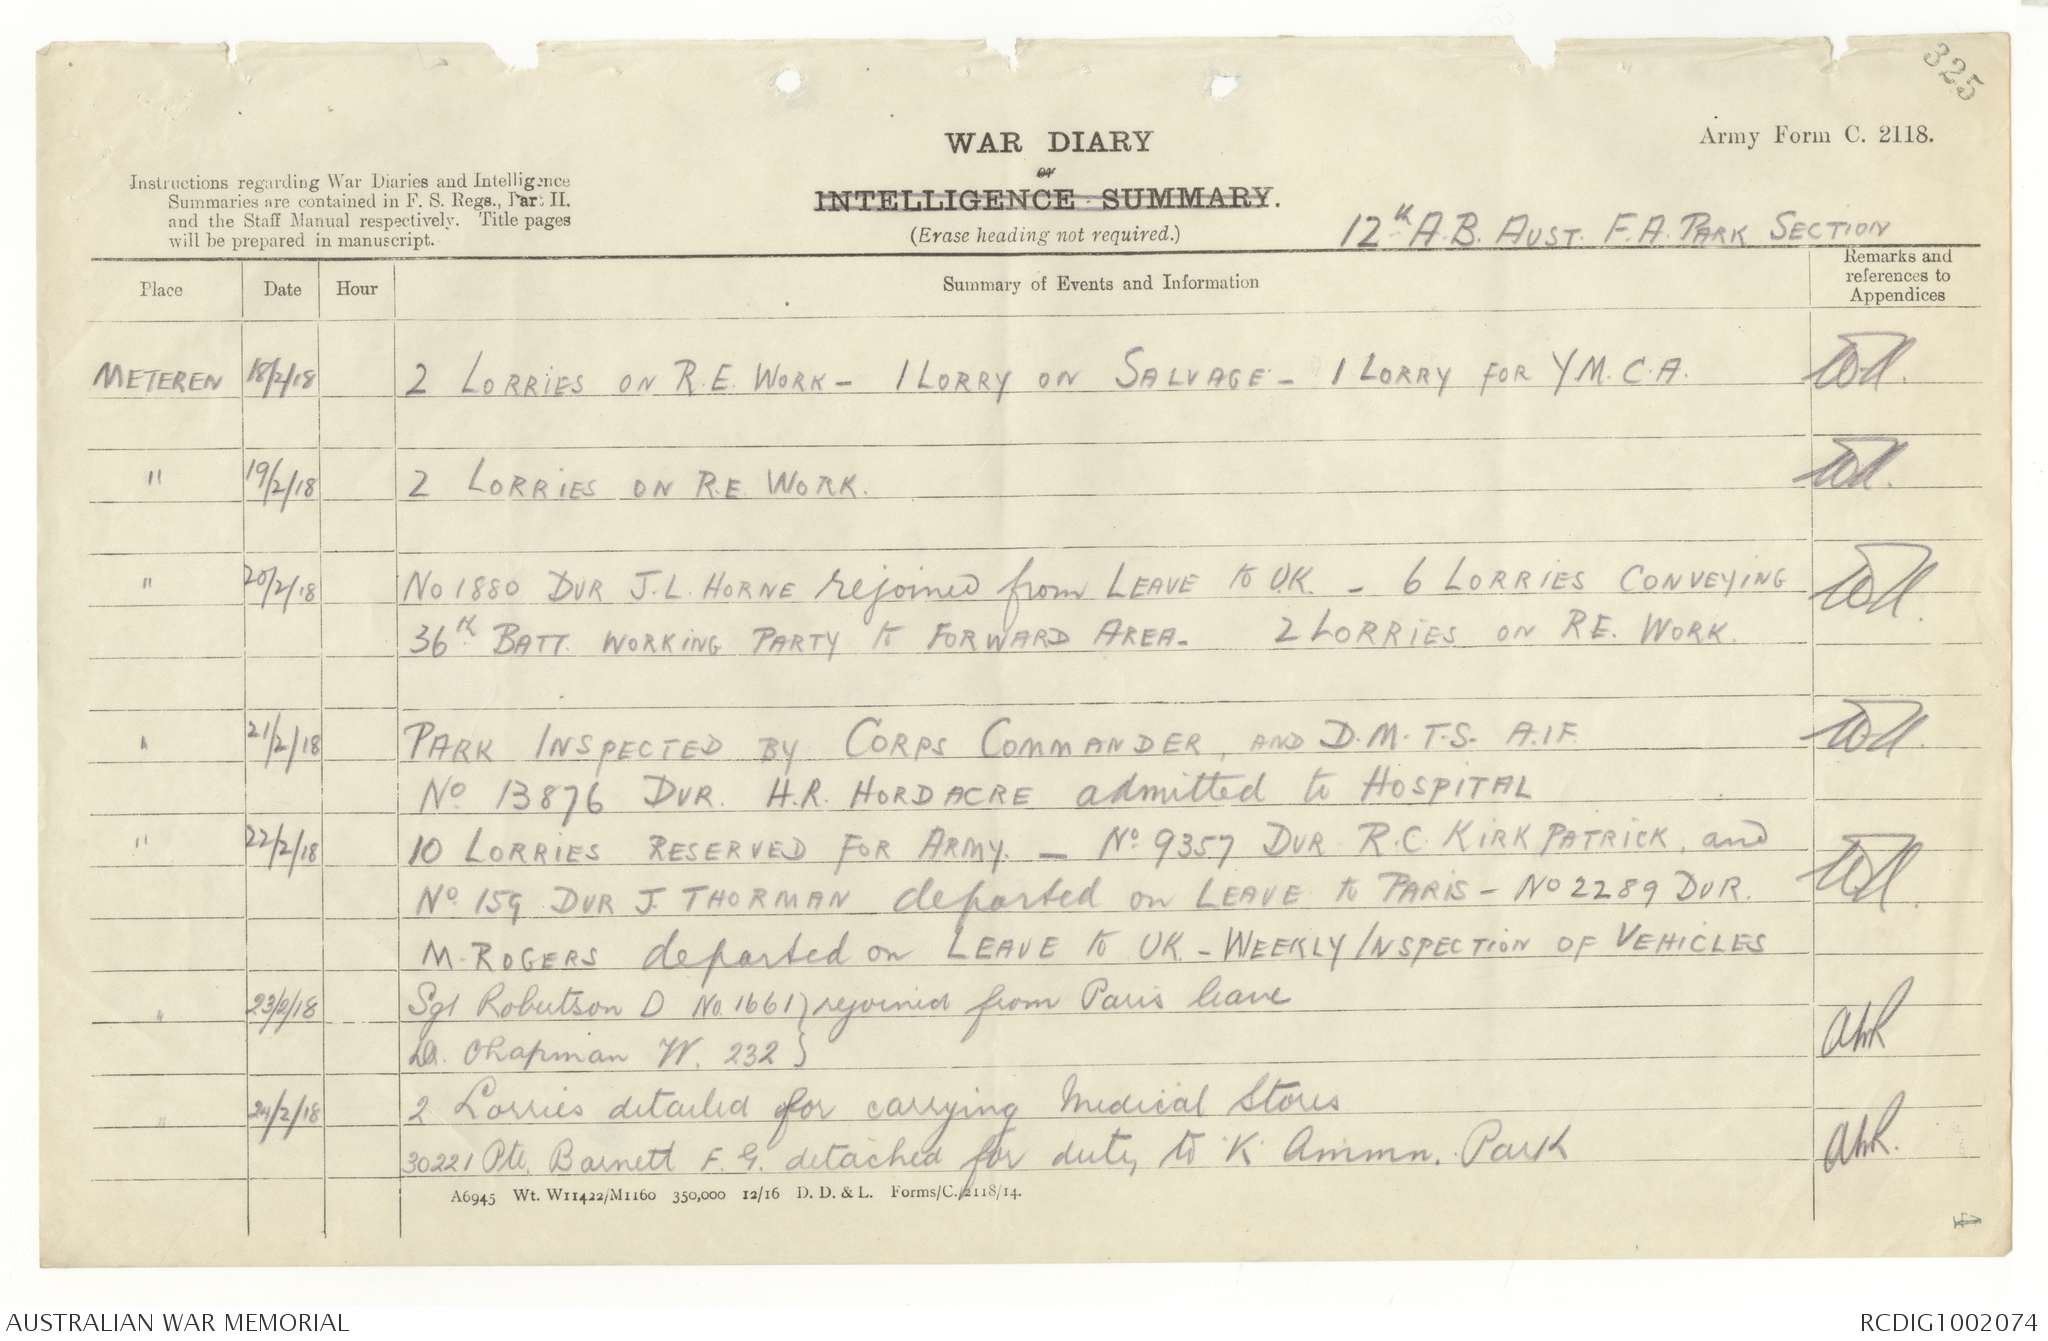 325
Army Form C. 2118.
WAR DIARY
or
INTELLIGENCE SUMMARY.
(Erase heading not required.)
Instructions regarding War Diaries and Intelligence
Summaries are contained in F. S. Regs., Part II.
and the Staff Manual respectively. Title pages
will be prepared in manuscript.
12th A.B. AUST. F.A. PARK SECTION
Place Date Hour Summary of Events and Information Remarks and references to Appendices
METEREN 18/2/18 2 LORRIES ON R.E. WORK - 1 LORRY ON SALVAGE - 1 LORRY FOR Y M.C.A.
" 19/2/18 2 LORRIES ON R.E. WORK.
" 20/2/18 No 1880 DVR J.L. HORNE rejoined from LEAVE to U.K. - 6 LORRIES CONVEYING
36th BATT. WORKING PARTY to FORWARD AREA - 2 LORRIES ON R.E. WORK.
" 21/2/18 PARK INSPECTED BY CORPS COMMANDER, AND D.M.T.S. A.I.F.
No 13876 DVR. H.R. HORDACRE admitted to HOSPITAL
" 22/2/18 10 LORRIES RESERVED FOR ARMY. - No. 9357 DVR R.C. KIRKPATRICK, and
No. 159 DVR J. THORMAN departed on LEAVE to PARIS - No 2289 DVR.
M. ROGERS departed on LEAVE to UK - WEEKLY INSPECTION OF VEHICLES
" 23/2/18 Sgt Robertson D No. 1661 } rejoined from Paris leave
Dr. Chapman W. 232 }
" 24/2/18 2 Lorries detailed for carrying Medical Stores
30221 Pte. Barnett F. G. detached for duty to K Ammn. Park
A6945 Wt. W11422/M1160 350,000 12/16 D. D. & L. Forms/C./2118/14.
4
AUSTRALIAN WAR MEMORIAL
RCDIG1002074